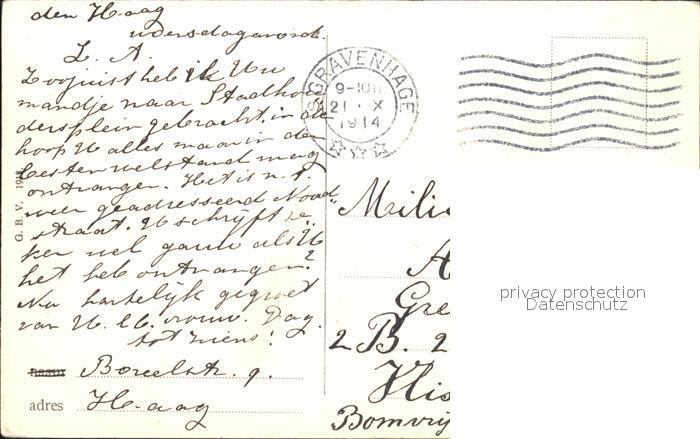 den Haag
woensdagavond.
L. A.
Zoojuist heb ik Uw
mandje naar Stadhou
dersplein gebracht, in de
hoop U alles maar in den
besten welstand mag
ontvangen. Het is n.l.
weer geadresseerd Nood
straat. U schrijft ze
ker wel gauw als U
het heb ontvangen?
Nu hartelijk gegroet
van Uw l.l. vrouw. Dag.
tot ziens!
naam Boreelstr. 9.
adres Haag
G. B. V.
'S GRAVENHAGE
9-10
21 X
1914
"Milic
A
Gre
2 B. 2
Vlis
Bomvrij
privacy protection
Datenschutz